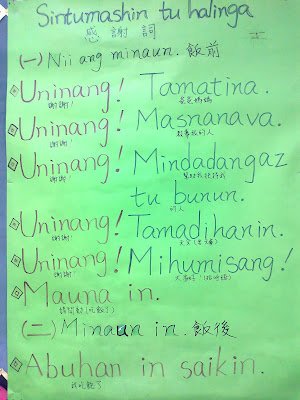 Sintumashin tu halinga
感謝詞
(一) Nii ang minaun. 飯前
Uninang! Tamatina.
謝謝! 爸爸媽媽
Uninang! Masnanava.
謝謝! 教導我的人
Uninang! Mindadangaz
謝謝! 幫助我扶持我
tu bunun.
的人
Uninang! Tamadihanin.
謝謝! 天父(上帝)
Uninang! Mihumisang!
謝謝!
Mauna in.
請開動(吃飯了)
(二) Minaun in. 飯後
Abuhan in saikin.
我吃飽了